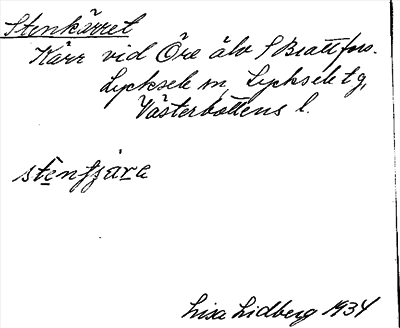 Stenkärret
Kärr vid Öre älv S Brattfors.
Lycksele sn, Lycksele tg,
Västerbottens l.
stenfjära
Lisa Lidberg 1934